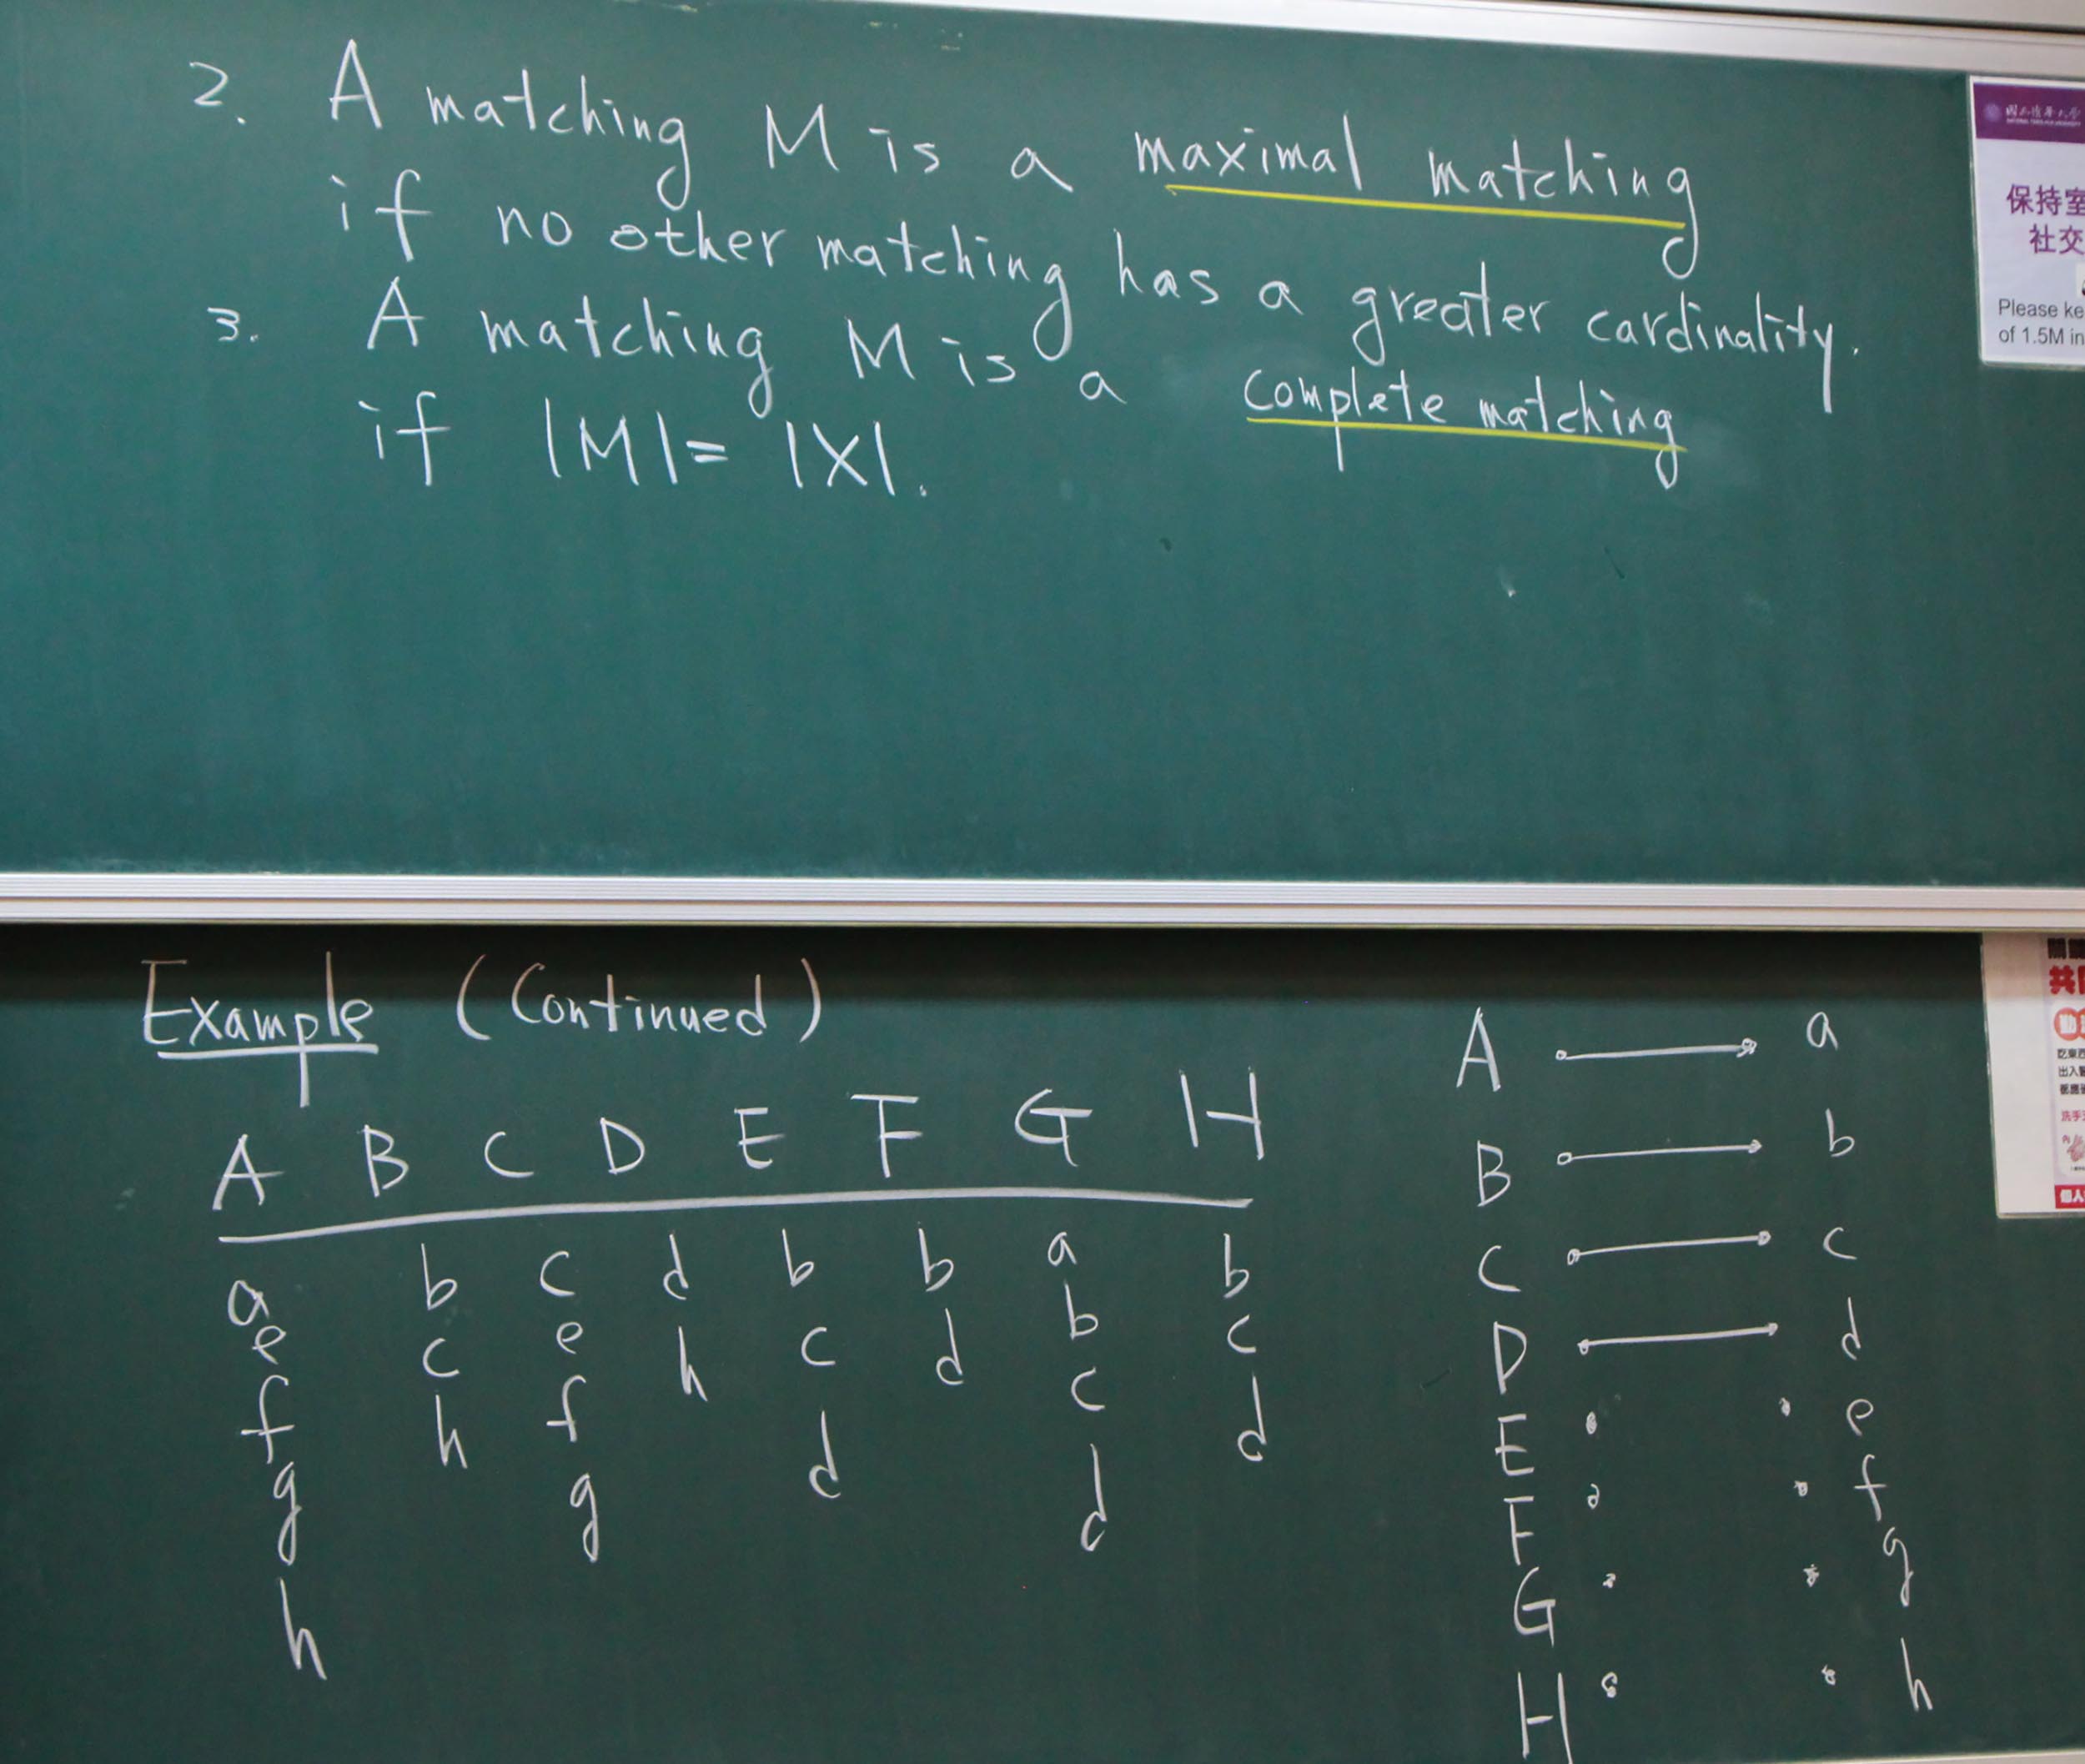 2. A matching M is a maximal matching
if no other matching has a greater cardinality.
3. A matching M is a complete matching
if |M| = |X|.
保持室
社交
Please ke
of 1.5M in
Example (Continued)
A B C D E F G H
a b c d b b a b
e c e h c d b c
f h f d c d
g g d
h
A a
B b
C c
D d
E e
F f
G g
H h